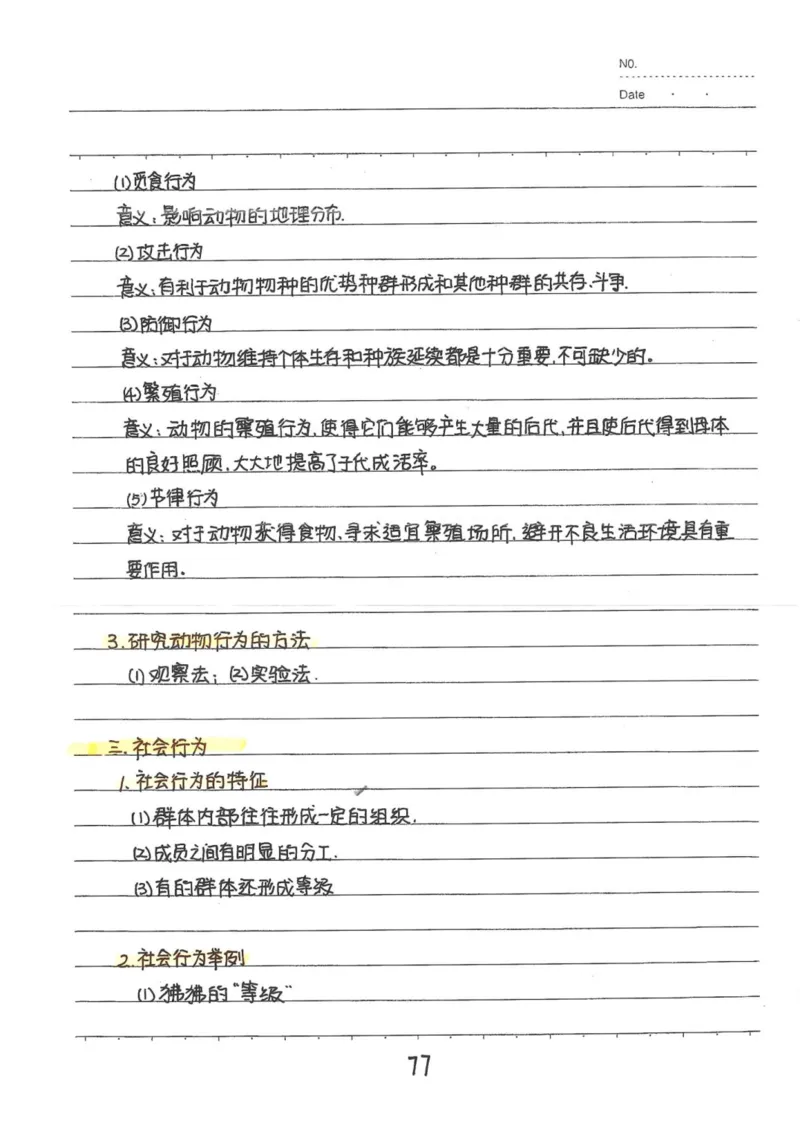 NO.
Date
(1)觅食行为
意义:影响动物的地理分布.
(2)攻击行为
意义:有利于动物物种的优势种群形成和其他种群的共存.斗争.
(3)防御行为
意义:对于动物维持个体生存和种族延续都是十分重要,不可缺少的。
(4)繁殖行为
意义:动物的繁殖行为,使得它们能够产生大量的后代,并且使后代得到母体
的良好照顾,大大地提高了子代成活率。
(5)节律行为
意义:对于动物获得食物、寻求适宜繁殖场所,避开不良生活环境具有重
要作用.
3.研究动物行为的方法
(1)观察法;(2)实验法.
三.社会行为
1.社会行为的特征
(1)群体内部往往形成一定的组织.
(2)成员之间有明显的分工.
(3)有的群体还形成等级
2.社会行为举例
(1)狒狒的"等级"
77